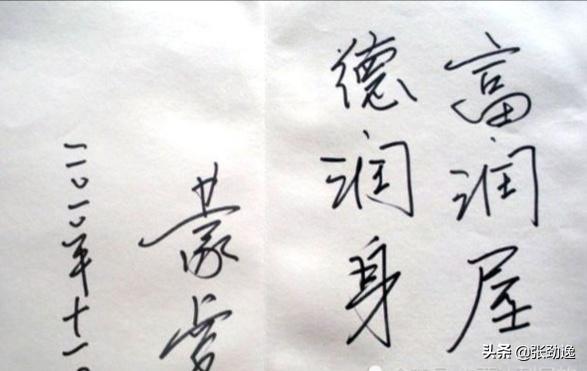 富润屋
德润身
蒙
二〇一〇年十一
头条 @张劲逸